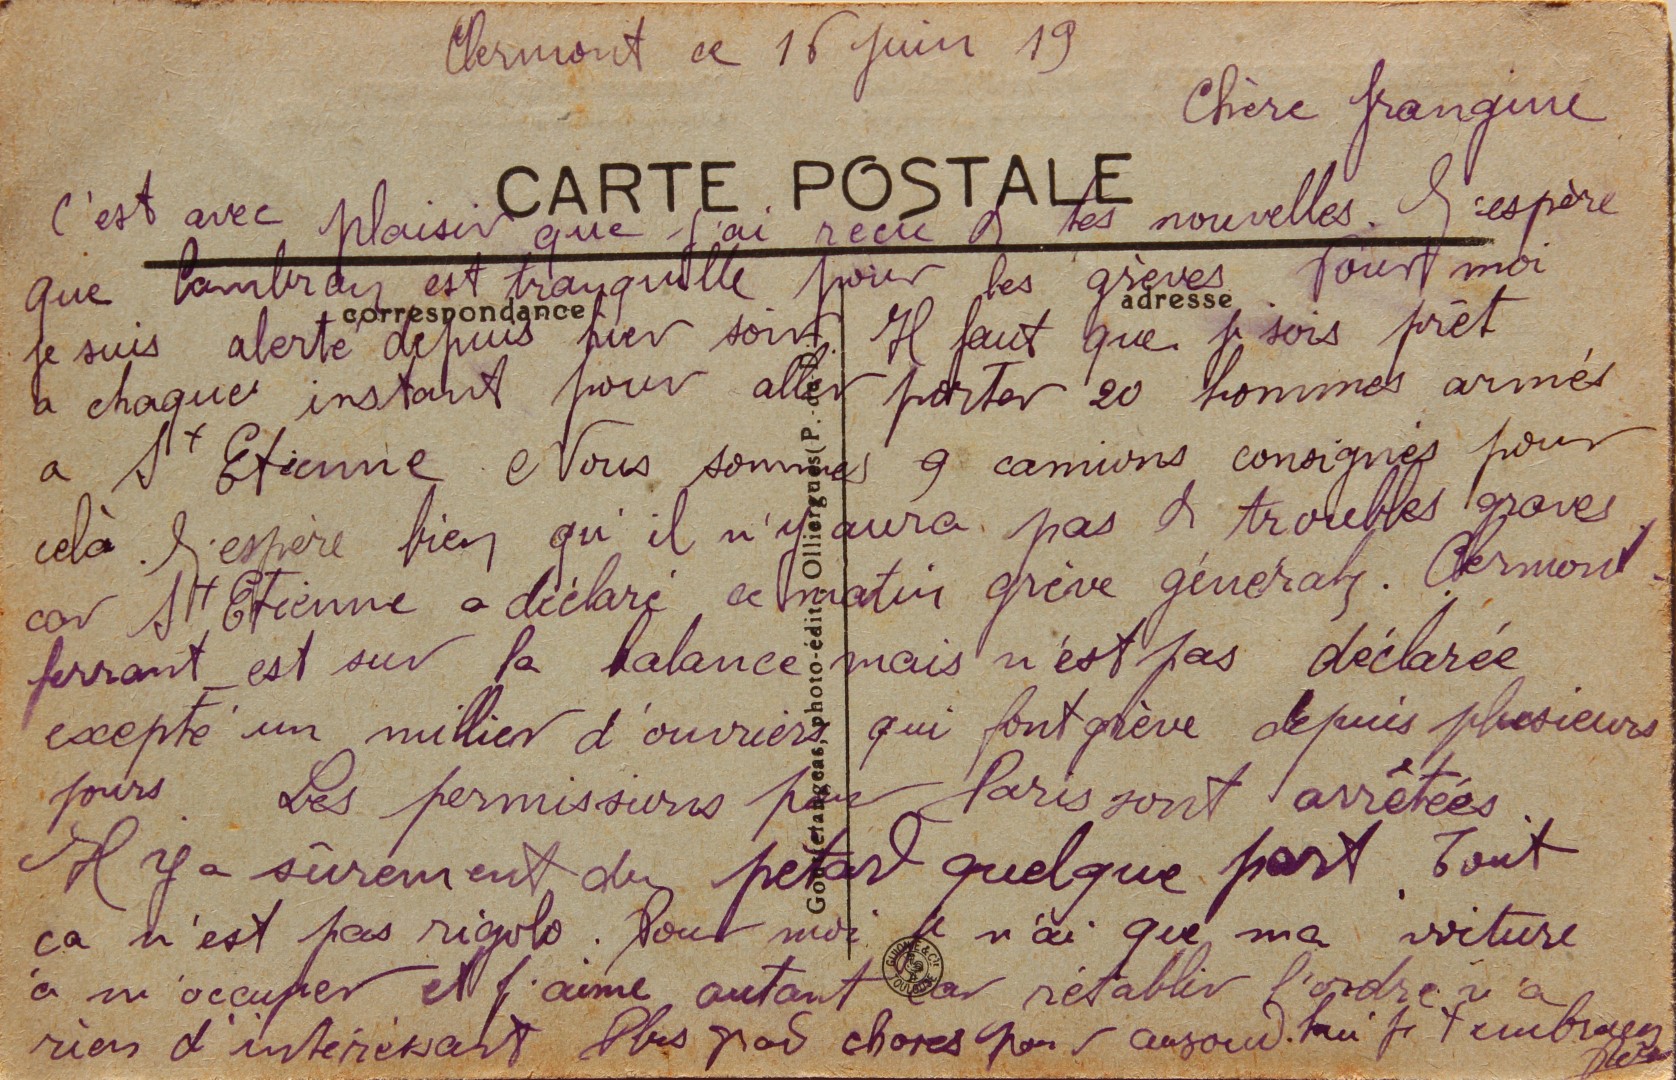 Clermont ce 16 juin 19
Chère frangine
CARTE POSTALE
C'est avec plaisir que j'ai reçu de tes nouvelles. J'espère
que Cambray est tranquille pour les grèves. Pour moi
correspondance
adresse
je suis alerté depuis hier soir. Il faut que je sois prêt
a chaque instant pour aller porter 20 hommes armés
a St Etienne. Nous sommes 9 camions consignés pour
celà. J'espère bien qu'il n'y aura pas de troubles graves
car St Etienne a déclaré ce matin grève générale. Clermont-
ferrant est sur la balance mais n'est pas déclarée
excepté un millier d'ouvriers qui font grève depuis plusieurs
jours. Les permissions pour Paris sont arrêtées
Il y a sûrement du petard quelque part. Tout
ça n'est pas rigolo. Pour moi je n'ai que ma voiture
à m'occuper et j'aime autant car rétablir l'ordre n'a
rien d'intéréssant Plus grand choses pour aujourd'hui je t'embrasse
photo-édit. Olliergues (P.-de-D.)